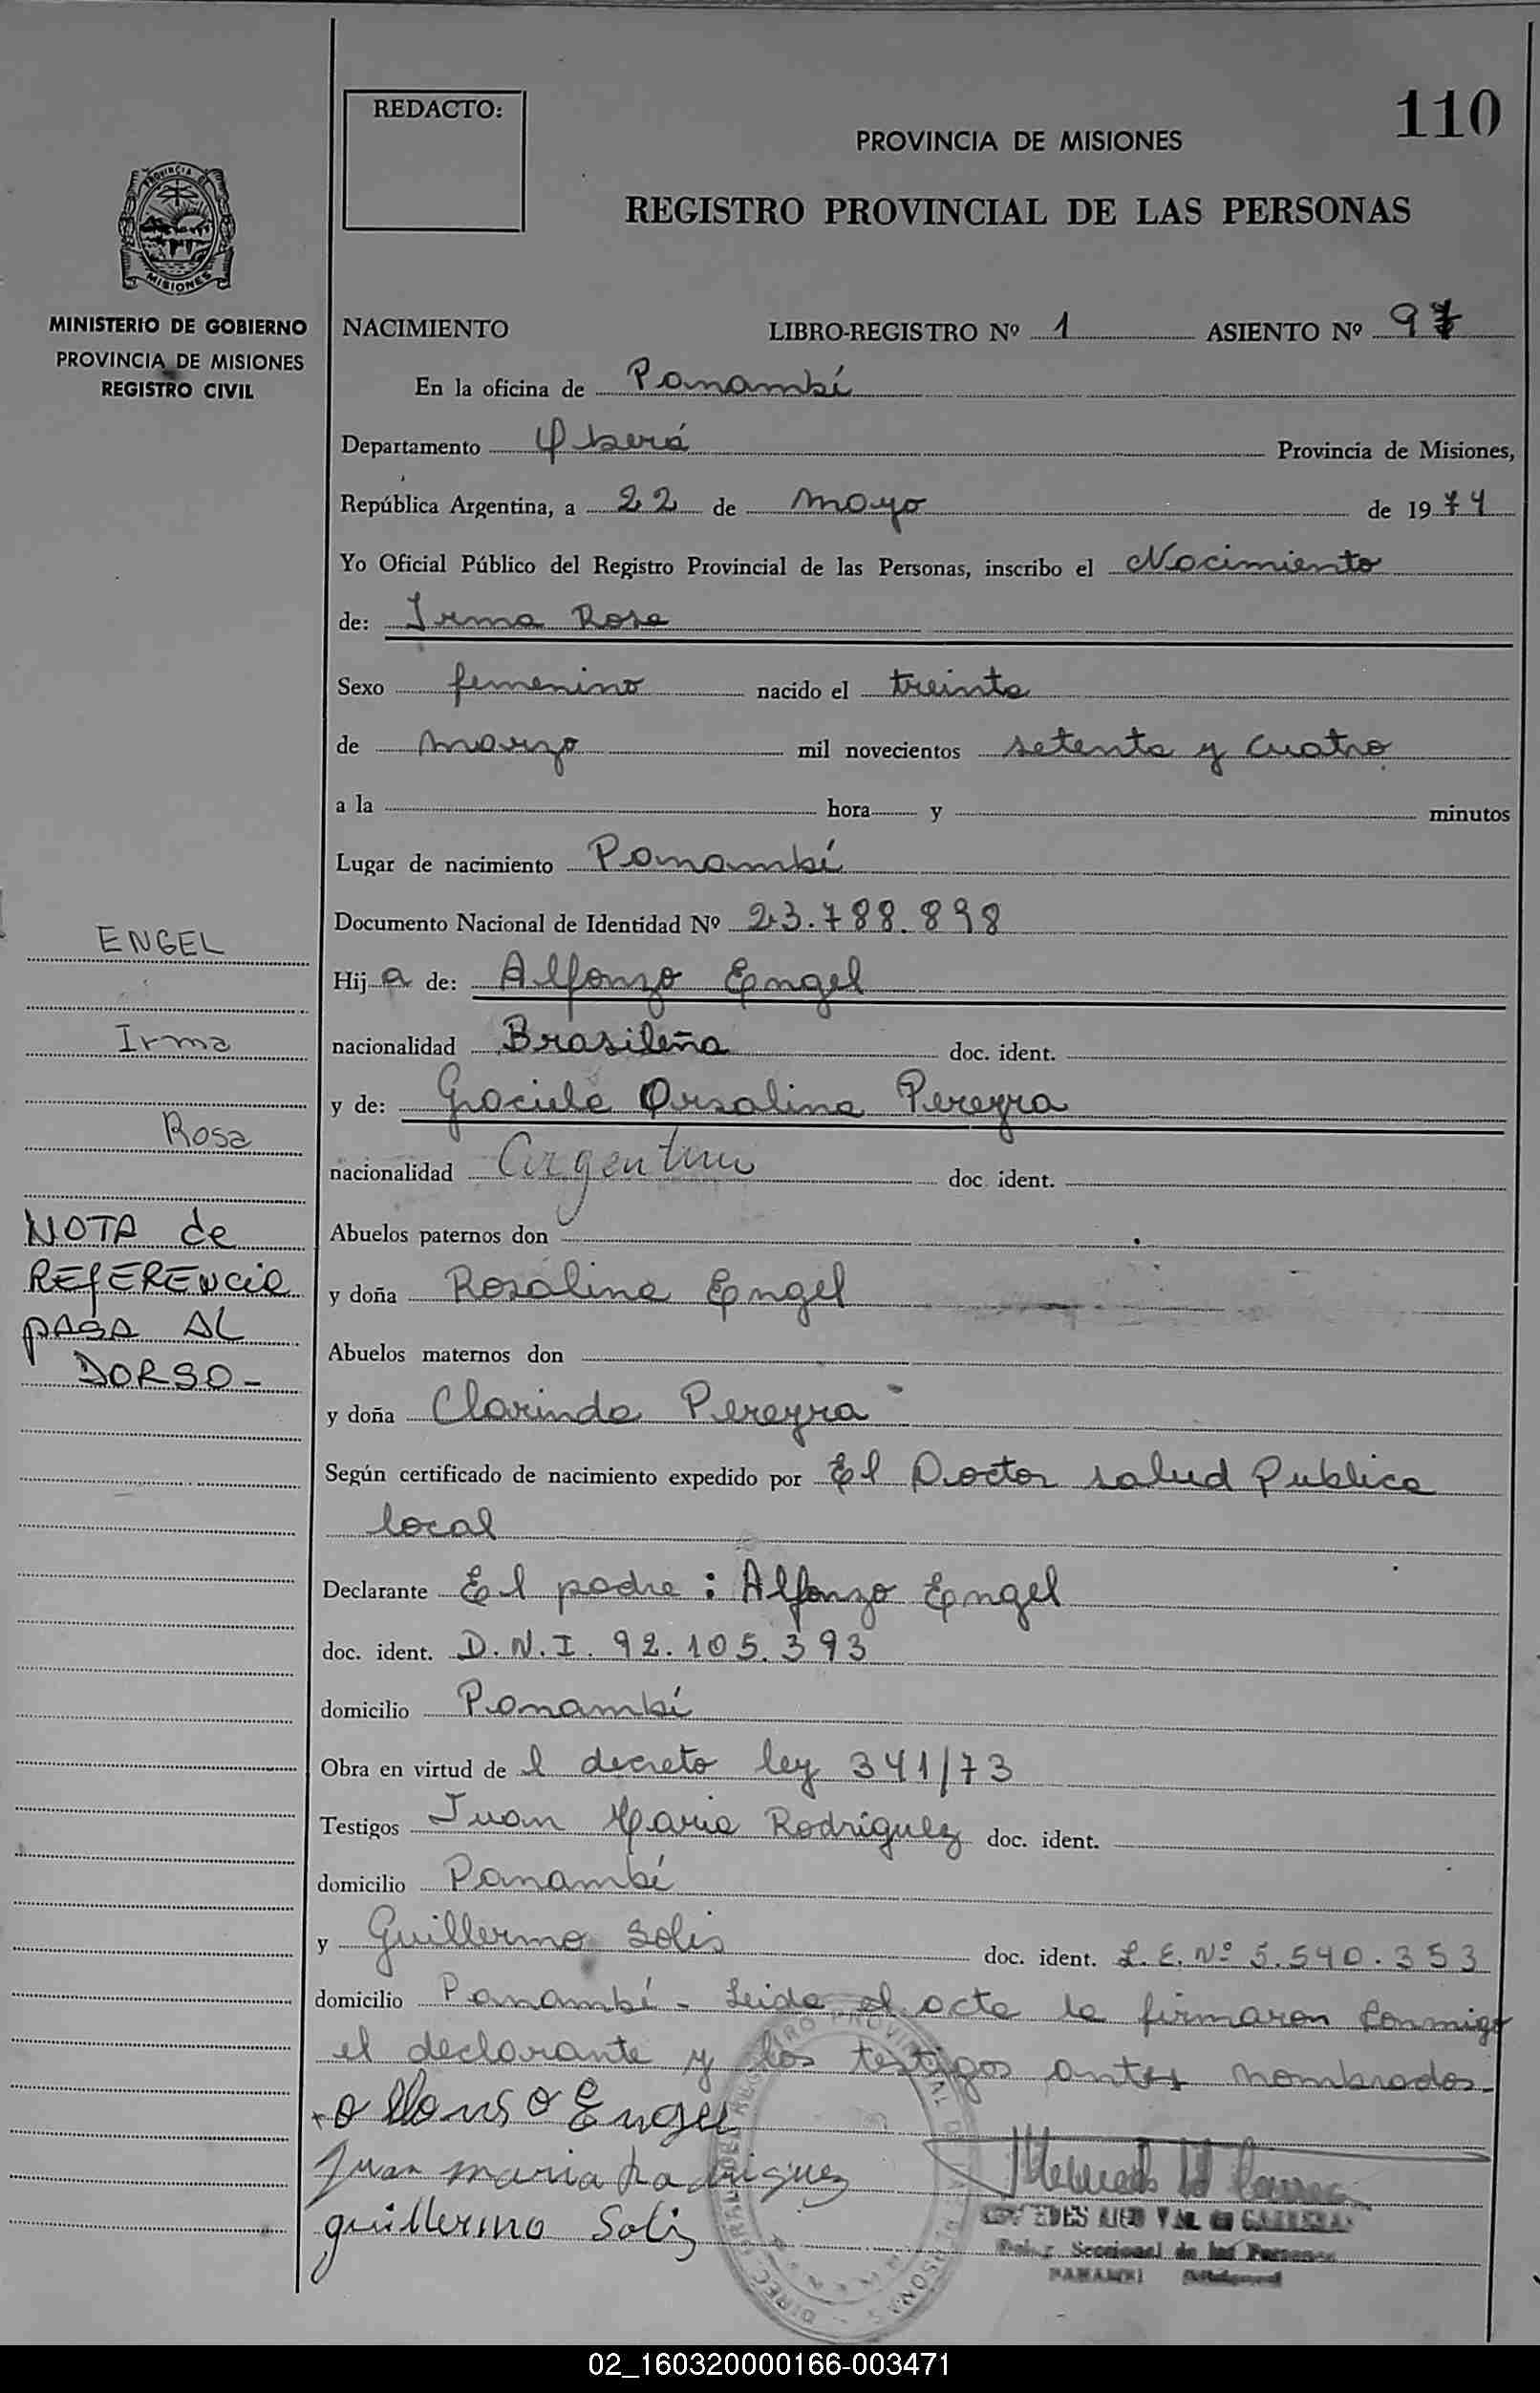 110
REDACTO:
PROVINCIA DE MISIONES
REGISTRO PROVINCIAL DE LAS PERSONAS
PROVINCIA DE
MISIONES
MINISTERIO DE GOBIERNO
PROVINCIA DE MISIONES
REGISTRO CIVIL
NACIMIENTO LIBRO-REGISTRO Nº 1 ASIENTO Nº 97
En la oficina de Panambí
Departamento Oberá Provincia de Misiones,
República Argentina, a 22 de mayo de 1974
Yo Oficial Público del Registro Provincial de las Personas, inscribo el Nacimiento
de: Irma Rosa
Sexo femenino nacido el treinta
de marzo mil novecientos setenta y cuatro
a la hora y minutos
Lugar de nacimiento Panambí
Documento Nacional de Identidad Nº 23.788.898
Hija de: Alfonzo Engel
nacionalidad Brasileña doc. ident.
y de: Graciela Orsalina Pereyra
nacionalidad Argentina doc. ident.
Abuelos paternos don
y doña Rosalina Engel
Abuelos maternos don
y doña Clarinda Pereyra
Según certificado de nacimiento expedido por El Doctor salud Publica
local
Declarante El padre: Alfonzo Engel
doc. ident. D.N.I. 92.105.393
domicilio Panambí
Obra en virtud de l decreto ley 341/73
Testigos Juan Maria Rodriguez doc. ident.
domicilio Panambí
y Guillermo Solis doc. ident. L.E. Nº 5.540.353
domicilio Panambí - Leida el acta la firmaron conmigo
el declarante y los testigos antes nombrados-
Alfonso Engel
Juan maria Rodriguez
guillermo Solis
Seccional de las Personas
PANAMBI
ENGEL
Irma
Rosa
NOTA de
REFERENCIA
PASA AL
DORSO-
02_160320000166-003471